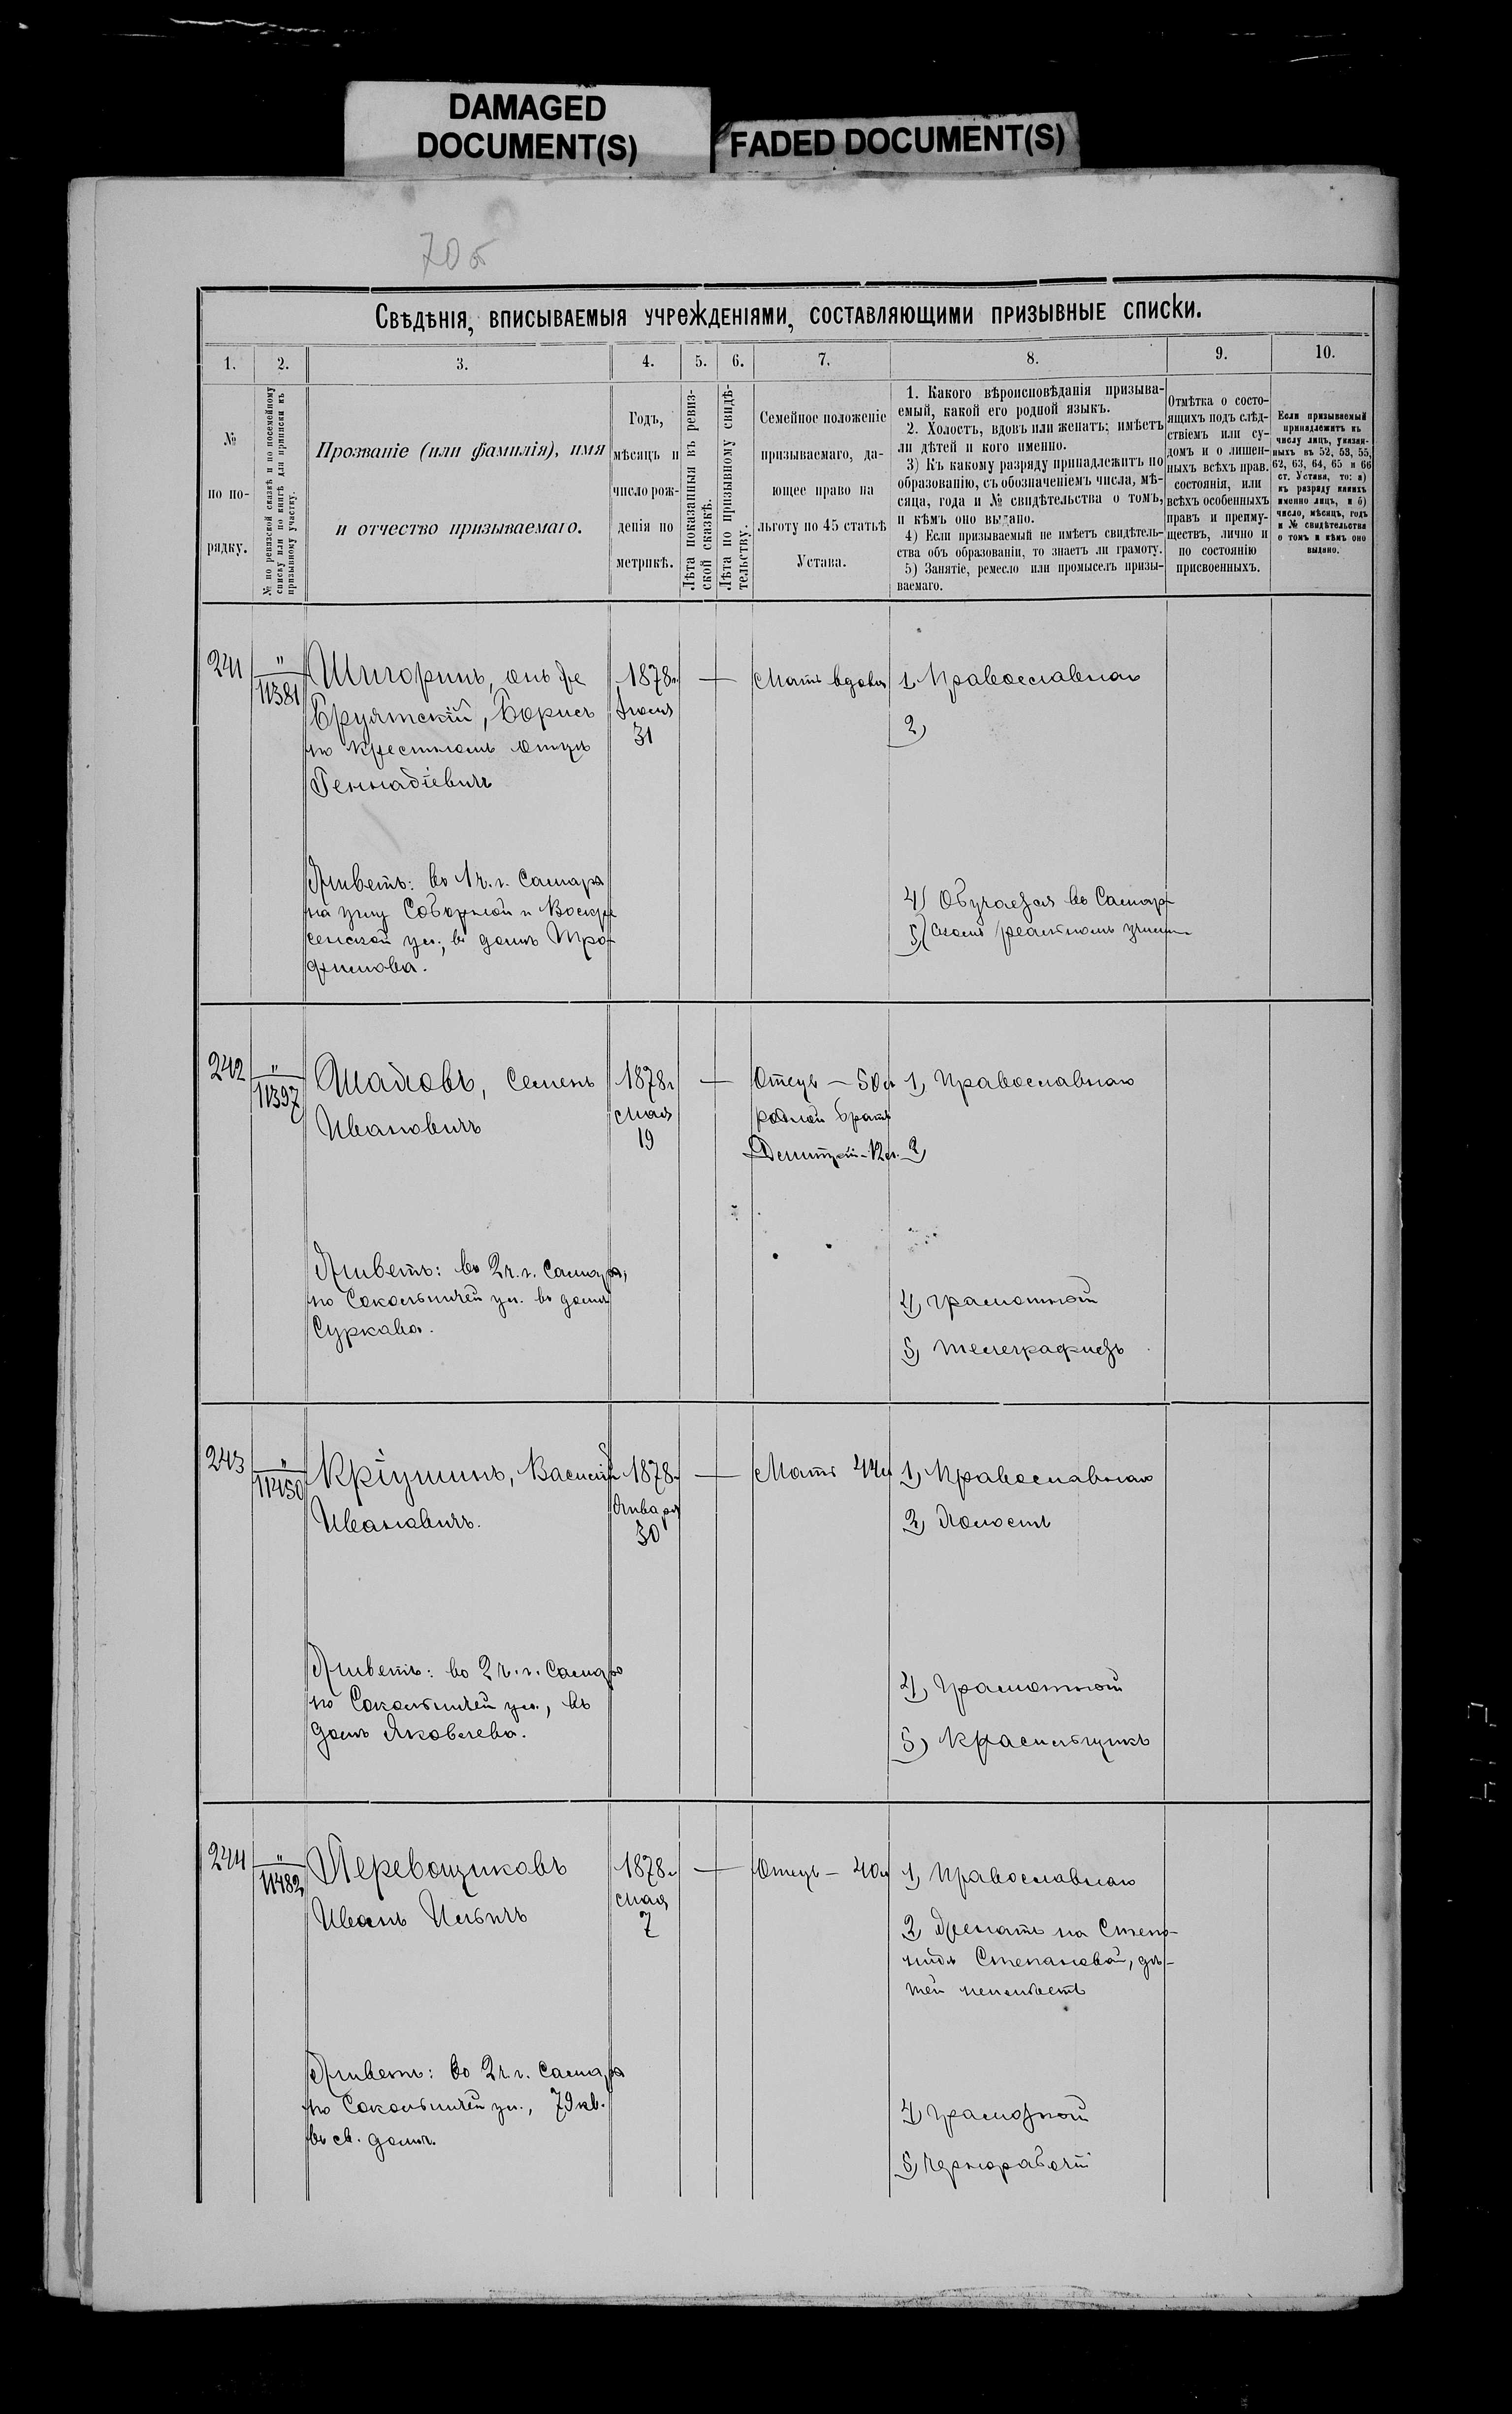 DAMAGED
DOCUMENT(S)
FADED DOCUMENT(S)
70б
Свѣдѣнія, вписываемыя учрежденіями, составляющими призывные списки.
1. 2. 3. 4. 5. 6. 7. 8. 9. 10.
№
по по-
рядку.
№ по ревизской сказкѣ и по посемейному
списку или по книгѣ для приписки къ
призывному участку.
Прозваніе (или фамилія), имя
и отчество призываемаго.
Годъ,
мѣсяцъ и
число рож-
денія по
метрикѣ.
Лѣта показанныя въ ревиз-
ской сказкѣ.
Лѣта по призывному свидѣ-
тельству.
Семейное положеніе
призываемаго, да-
ющее право на
льготу по 45 статьѣ
Устава.
1. Какого вѣроисповѣданія призыва-
емый, какой его родной языкъ.
2. Холостъ, вдовъ или женатъ; имѣетъ
ли дѣтей и кого именно.
3) Къ какому разряду принадлежитъ по
образованію, съ обозначеніемъ числа, мѣ-
сяца, года и № свидѣтельства о томъ,
и кѣмъ оно выдано.
4) Если призываемый не имѣетъ свидѣтель-
ства объ образованіи, то знаетъ ли грамоту.
5) Занятіе, ремесло или промыселъ призы-
ваемаго.
Отмѣтка о состо-
ящихъ подъ слѣд-
ствіемъ или су-
домъ и о лишен-
ныхъ всѣхъ прав.
состоянія, или
всѣхъ особенныхъ
правъ и преиму-
ществъ, лично и
по состоянію
присвоенныхъ.
Если призываемый
принадлежитъ къ
числу лицъ, указан-
ныхъ въ 52, 53, 55,
62, 63, 64, 65 и 66
ст. Устава, то: а)
къ разряду какихъ
именно лицъ, и б)
число, мѣсяцъ, годъ
и № свидѣтельства
о томъ и кѣмъ оно
выдано.
241
"
11381
Шигоринъ, онъ же
Бруятскій, Борисъ
по крестномъ отцѣ
Геннадіевичъ
1878г.
31
—
Мать вдова
1, Православнаго
2)
Живетъ: въ 1 ч. г. Самара
на углу Соборной и Воскре
сенской ул., въ домѣ Тро-
фимова.
4) Обучается въ Самар-
5) скомъ реальномъ училищ
242
"
11397
Семенъ
Ивановичъ
1878г.
мая
19
—
Отецъ — 50л
родной братъ
Дмитрій – 12л.
1, Православнаго
2,
Живетъ: во 2 ч. г. Самара,
по Сокольничей ул. въ домѣ
Суркова.
4, грамотной
5, телеграфистъ
243
"
11450
Кріушинъ, Василій
Ивановичъ.
1878г.
Января
30
—
Мать 44л
1, Православнаго
2, Холостъ
Живетъ: во 2 ч. г. Самара
по Сокольничей ул., въ
домѣ Яковлева.
4, Грамотной
5) Красильщикъ
244
"
11482
Перевощиковъ
Иванъ Ильичъ
1878г.
мая
7
—
Отецъ — 40л
1, Православнаго
2, Женатъ на Степа-
нидѣ Степановой, дѣ-
тей неимѣетъ
Живетъ: во 2 ч. г. Самара
по Сокольничей ул., 79 кв.
въ св. домѣ.
4) грамотной
5) Чернорабочій